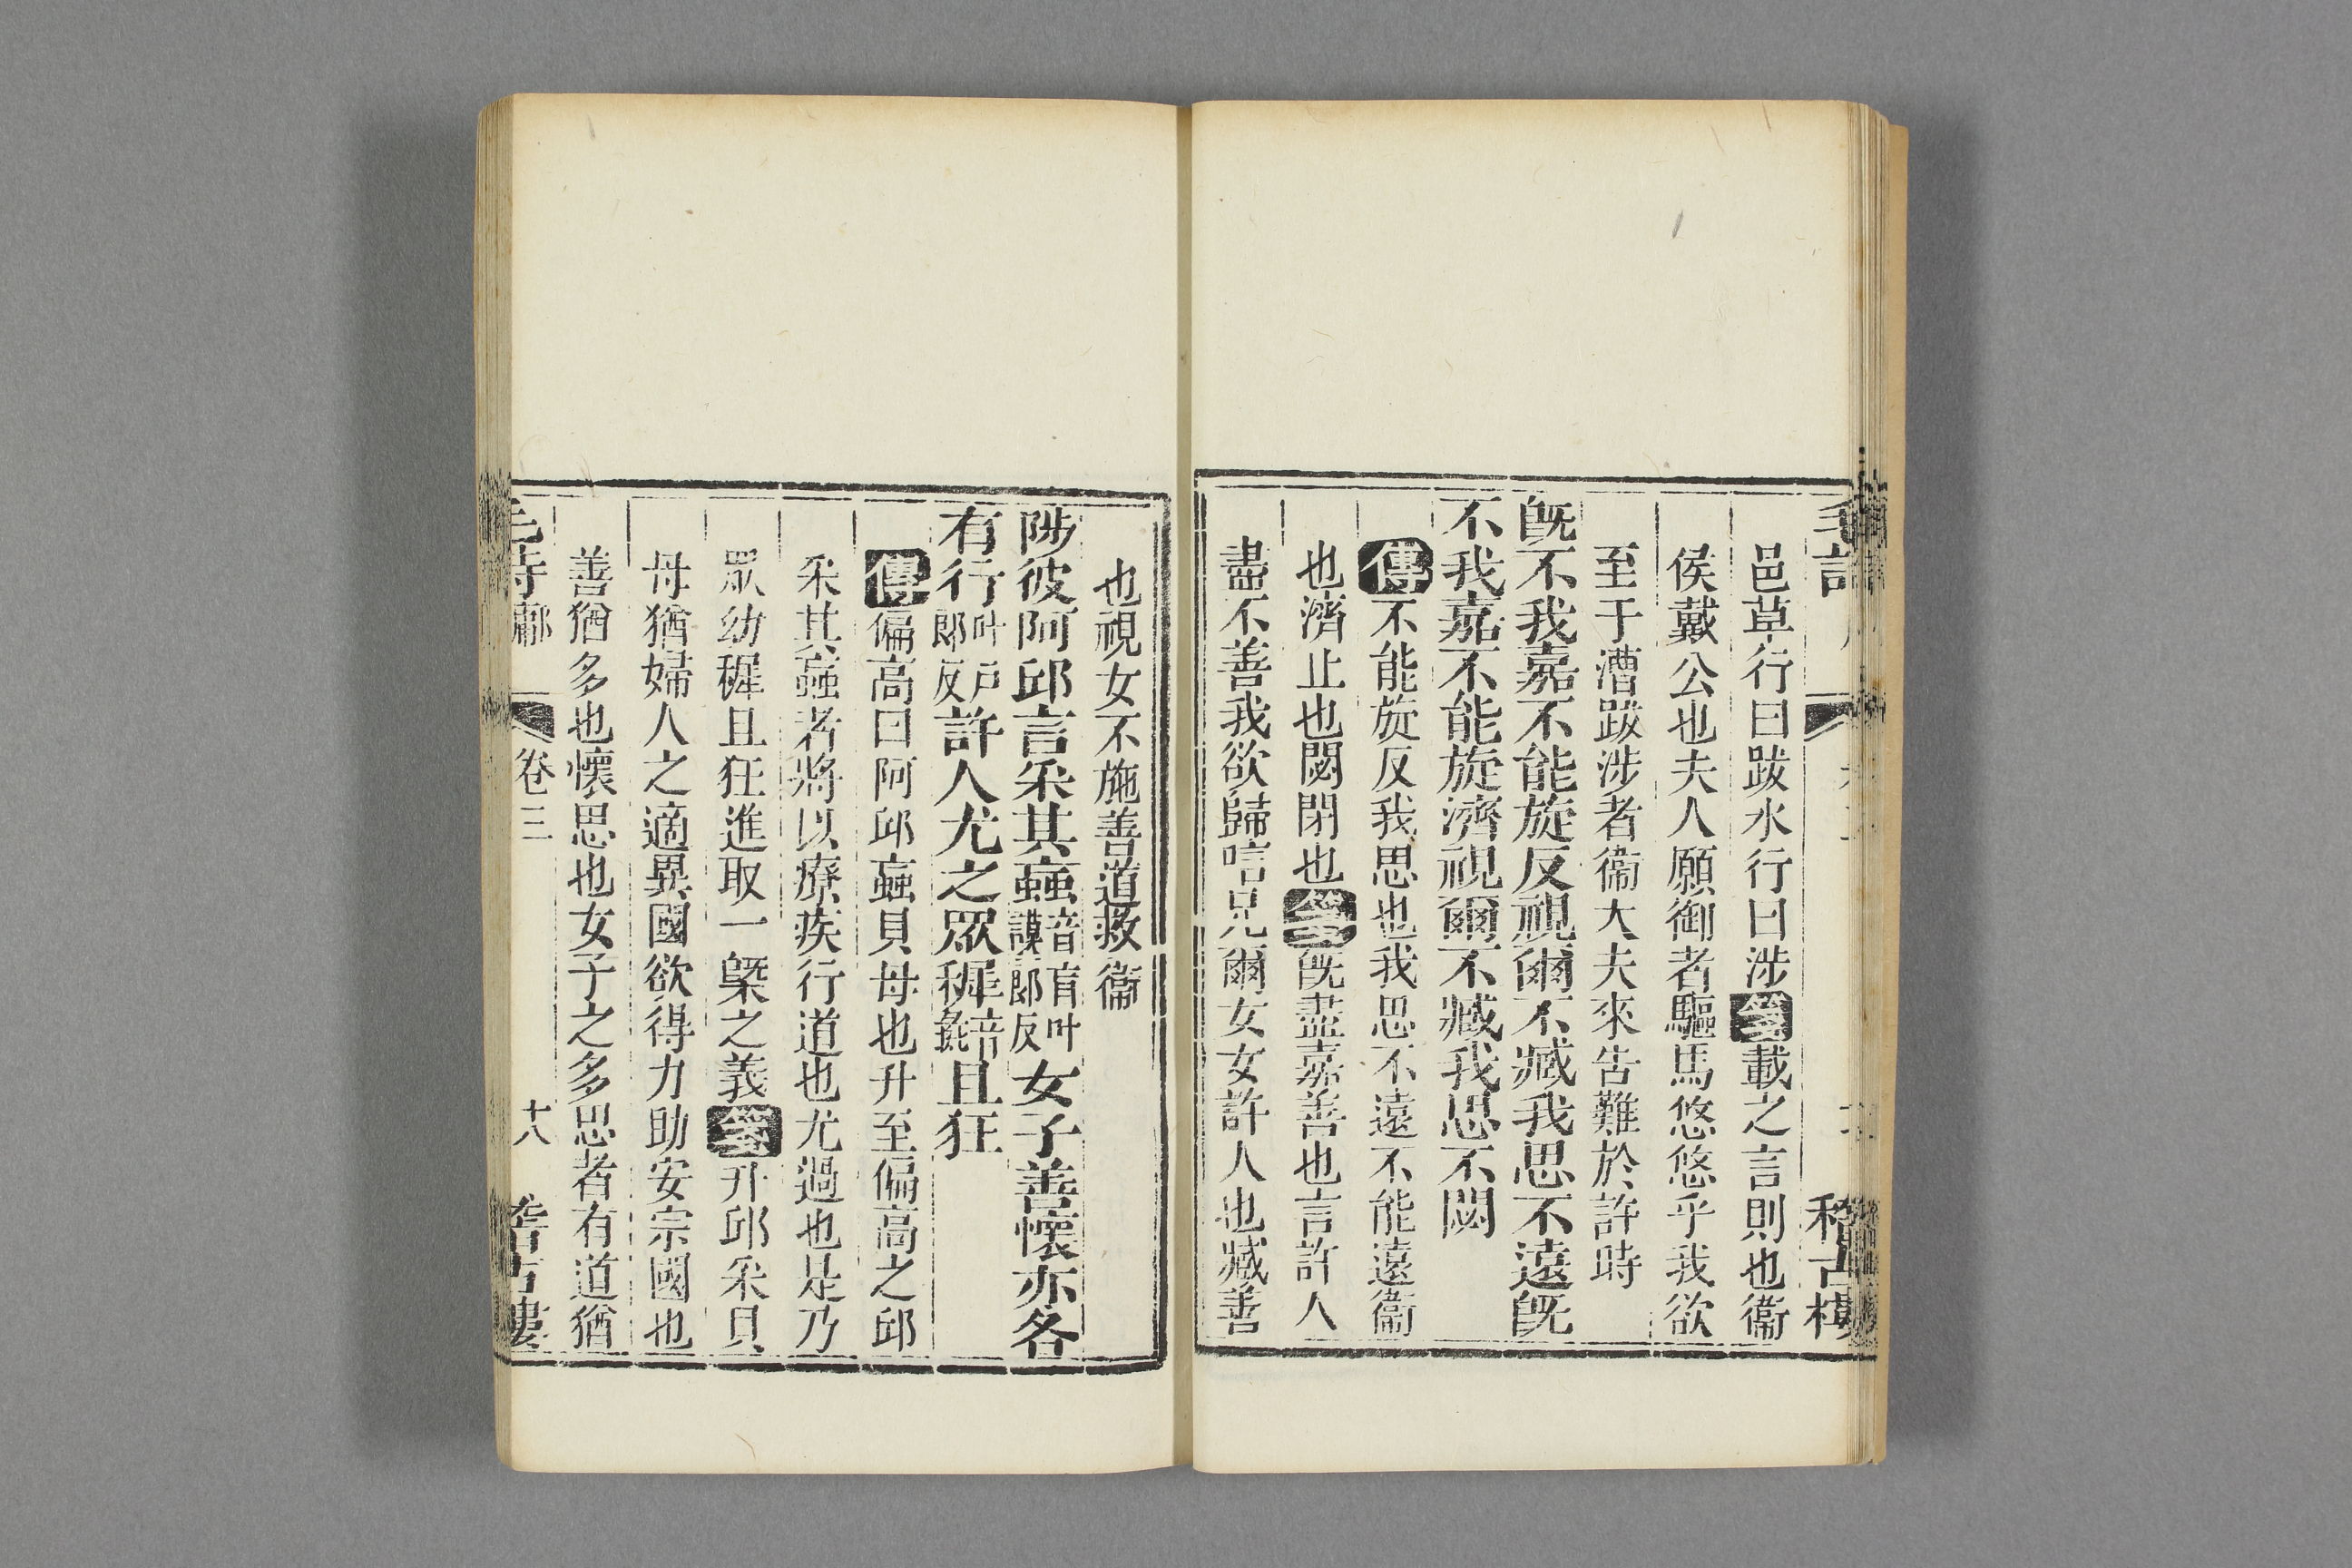 邑草行曰跋水行曰涉箋載之言則也衞
侯戴公也夫人願御者驅馬悠悠乎我欲
至于漕跋涉者衞大夫來告難於許時
旣不我嘉不能旋反視爾不臧我思不遠旣
不我嘉不能旋濟視爾不臧我思不閟
傳不能旋反我思也我思不遠不能遠衞
也濟止也閟閉也箋旣盡嘉善也言許人
盡不善我欲歸唁兄爾女女許人也臧善
也視女不施善道救衞
陟彼阿邱言采其蝱音盲叶謨郎反女子善懷亦各
有行叶戶郎反許人尤之眾穉音彘且狂
傳偏高曰阿邱蝱貝母也升至偏高之邱
采其蝱者將以療疾行道也尤過也是乃
眾幼穉且狂進取一槩之義箋升邱采貝
母猶婦人之適異國欲得力助安宗國也
善猶多也懷思也女子之多思者有道猶
毛詩鄘 卷三 十八 稽古樓